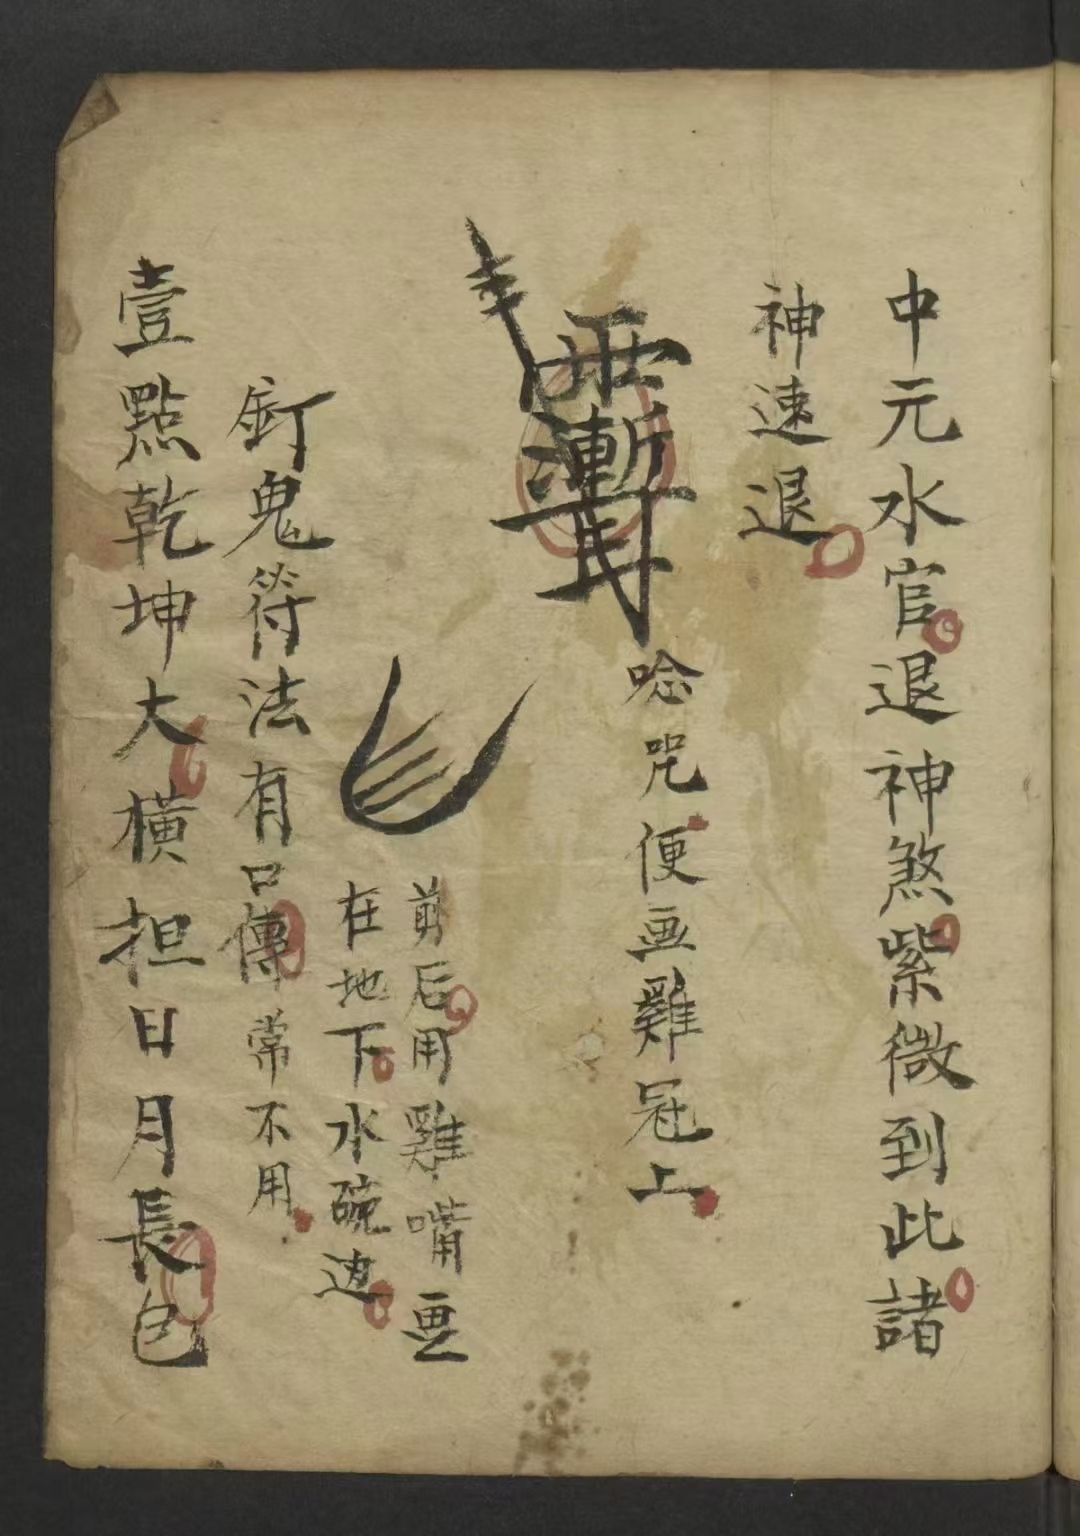 中元水官退神煞紫微到此諸
神速退
唸咒便画雞冠上
剪后用雞嘴画
在地下水碗边
釘鬼符法有口傳常不用
壹點乾坤大橫担日月長包